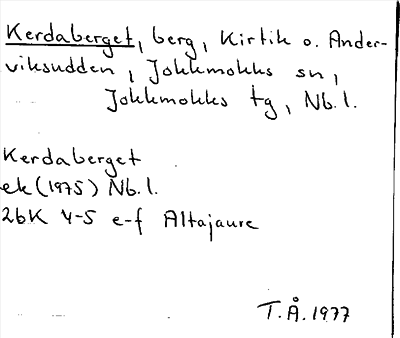 Kerdaberget, berg, Kirtik o. Ander-
viksudden, Jokkmokks sn,
Jokkmokks tg, Nb. l.
Kerdaberget
ek (1975) Nb. l.
26K 4-5 e-f Altajaure
T.Å. 1977